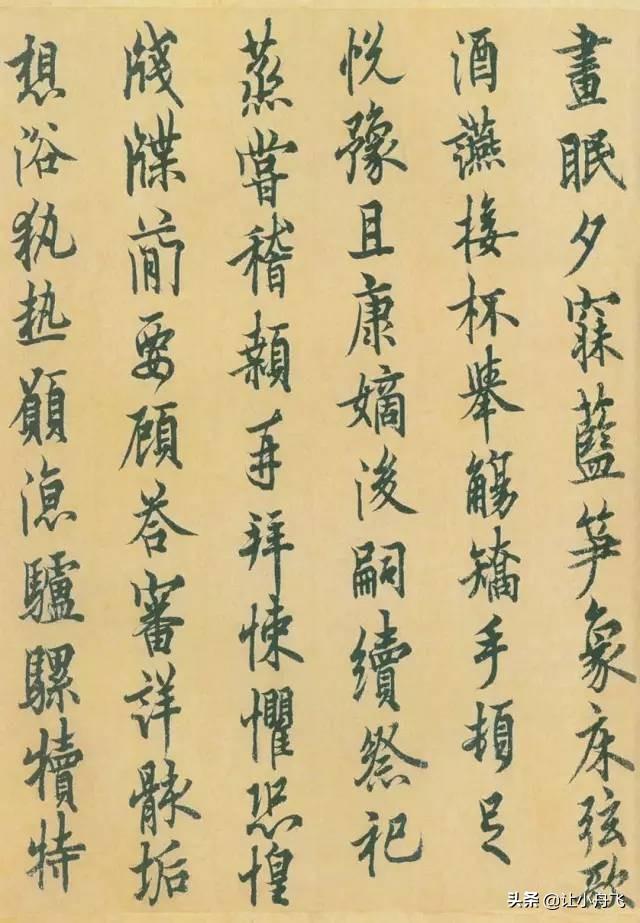 晝眠夕寐藍笋象床弦歌
酒讌接杯舉觴矯手頓足
悦豫且康嫡後嗣續祭祀
蒸嘗稽顙再拜悚懼恐惶
牋牒簡要顧荅審詳骸垢
想浴執熱願凉驢騾犢特
头条 @让小舟飞